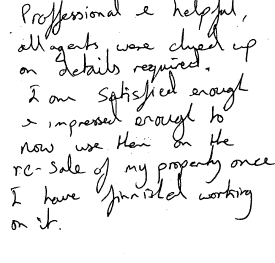 Proffessional & helpful,
all agents were clued up
on details required.
I am satisfied enough
& impressed enough to
now use them on the
re-sale of my property once
I have finnished working
on it.